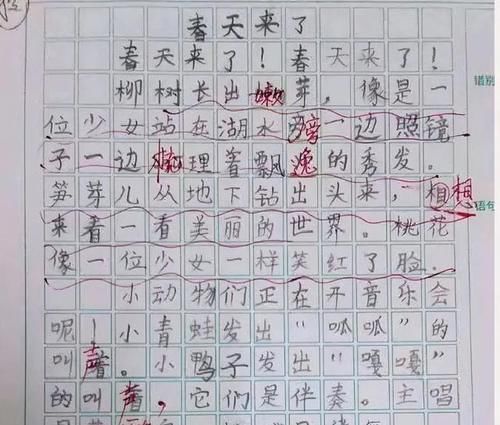 春天来了
春天来了！春天来了！
柳树长出嫩芽，像是一
位少女站在湖水旁一边照镜
子一边梳理着飘逸的秀发。
笋芽儿从地下钻出头来，想
来看一看美丽的世界。桃花
像一位少女一样笑红了脸。
小动物们正在开音乐会
呢！小青蛙发出“呱呱”的
叫声。小鸭子发出“嘎嘎”
的叫声，它们是伴奏。主唱
错别
语句